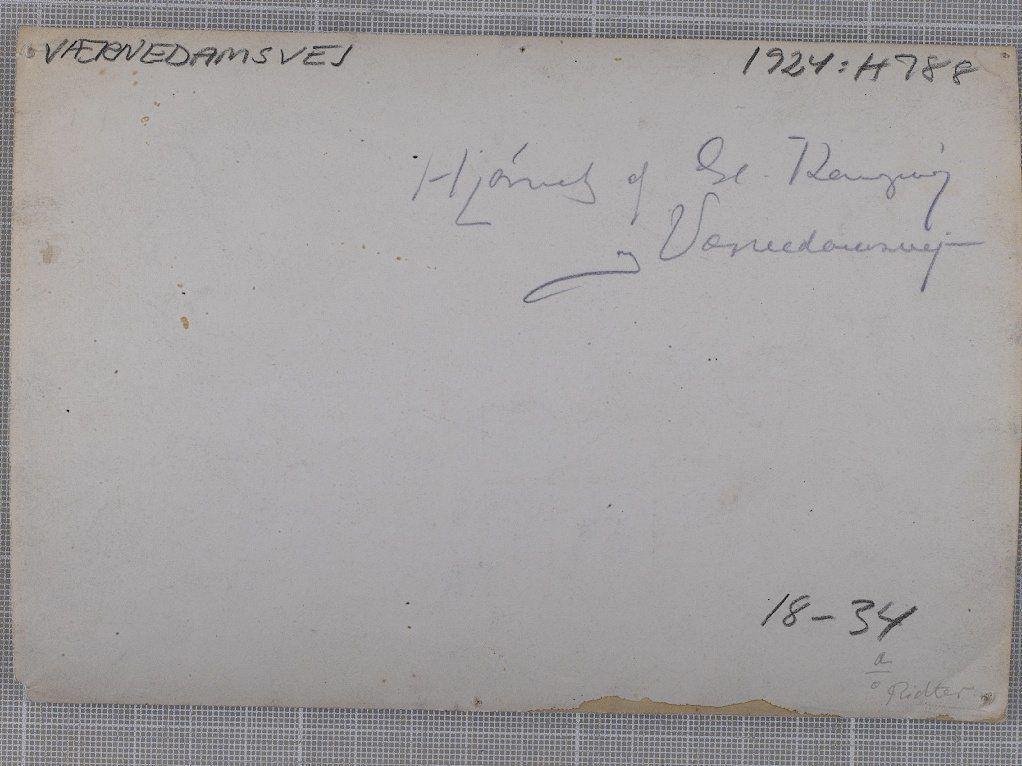 VÆRNEDAMSVEJ
1924:H788
Hjørnet af Gl. Kongevej
og Værnedamsvej
18-34
a
Ridter